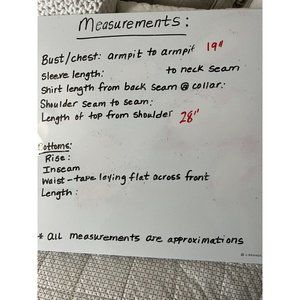 Measurements:
Bust/chest: armpit to armpit 19"
Sleeve length: to neck seam
Shirt length from back seam @ collar:
Shoulder seam to seam:
Length of top from shoulder 28"
Bottoms:
Rise:
Inseam
Waist-tape laying flat across front
Length:
* all measurements are approximations